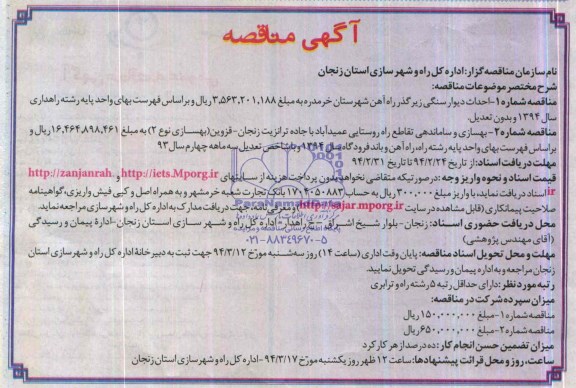 آگهی مناقصه
نام سازمان مناقصه گزار: اداره کل راه و شهر سازی استان زنجان
شرح مختصر موضوعات مناقصه:
مناقصه شماره ۱- احداث دیوار سنگی زیر گذر راه آهن شهرستان خرمدره به مبلغ ۳,۵۶۳,۲۰۱,۱۸۸ ریال و بر اساس فهرست بهای واحد پایه رشته راهداری
سال ۱۳۹۴ و بدون تعدیل.
مناقصه شماره ۲- بهسازی و ساماندهی تقاطع راه روستایی عمیدآباد با جاده ترانزیت زنجان - قزوین (بهسازی نوع ۲) به مبلغ ۱۶,۴۶۴,۸۹۸,۴۶۱ ریال و
بر اساس فهرست بهای واحد پایه رشته راه، راه آهن و باند فرودگاه سال ۱۳۹۴ و با شاخص تعدیل سه ماهه چهارم سال ۹۳
مهلت دریافت اسناد: از تاریخ ۹۴/۲/۲۴ تا تاریخ ۹۴/۲/۳۱
قیمت اسناد و نحوه واریز وجه: در صورتیکه متقاضی نخواهد بدون پرداخت هزینه از سایتهای http://iets.Mporg.ir و http://zanjanrah.
ir اسناد دریافت نماید، با واریز مبلغ ۳۰۰,۰۰۰ ریال به حساب ۱۷۰۴۰۵۰۸۸۳ بانک تجارت شعبه خرمشهر و به همراه اصل و کپی فیش واریزی، گواهینامه
صلاحیت پیمانکاری (قابل مشاهده در سایت http://sajar.mporg.ir) و معرفی نامه جهت دریافت مدارک به اداره کل راه و شهرسازی مراجعه نماید.
محل دریافت حضوری اسناد: زنجان - بلوار شیخ اشراق - خ راهدار - اداره کل راه و شهر سازی استان زنجان - ادارۀ پیمان و رسیدگی
(آقای مهندس پژوهشی)
مهلت و محل تحویل اسناد مناقصه: پایان وقت اداری (ساعت ۱۴) روز سه شنبه مورخ ۹۴/۳/۱۲ جهت ثبت به دبیرخانۀ اداره کل راه و شهرسازی استان
زنجان مراجعه و به اداره پیمان و رسیدگی تحویل نمایید.
رتبه مورد نظر: دارای حداقل رتبه ۵ رشته راه و ترابری
میزان سپرده شرکت در مناقصه:
مناقصه شماره ۱- مبلغ ۱۵۰,۰۰۰,۰۰۰ ریال
مناقصه شماره ۲- مبلغ ۶۵۰,۰۰۰,۰۰۰ ریال
میزان تضمین حسن انجام کار: ده درصد از هر کارکرد
ساعت، روز و محل قرائت پیشنهادها: ساعت ۱۲ ظهر روز یکشنبه مورخ ۹۴/۳/۱۷ - اداره کل راه و شهر سازی استان زنجان
ParsNamadData
۰۲۱-۸۸۳۴۹۶۷۰-۵